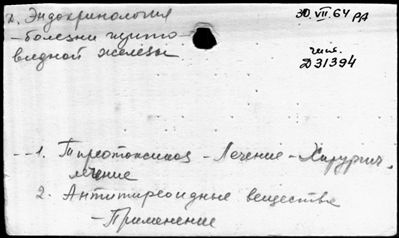 2. Эндокринология
- болезни щито-
видной железы
30.VII.64 РА
чит.
Д31394
1. Тиреотоксикоз - Лечение - Хирургич.
лечение
2. Антитиреоидные вещества
- Применение